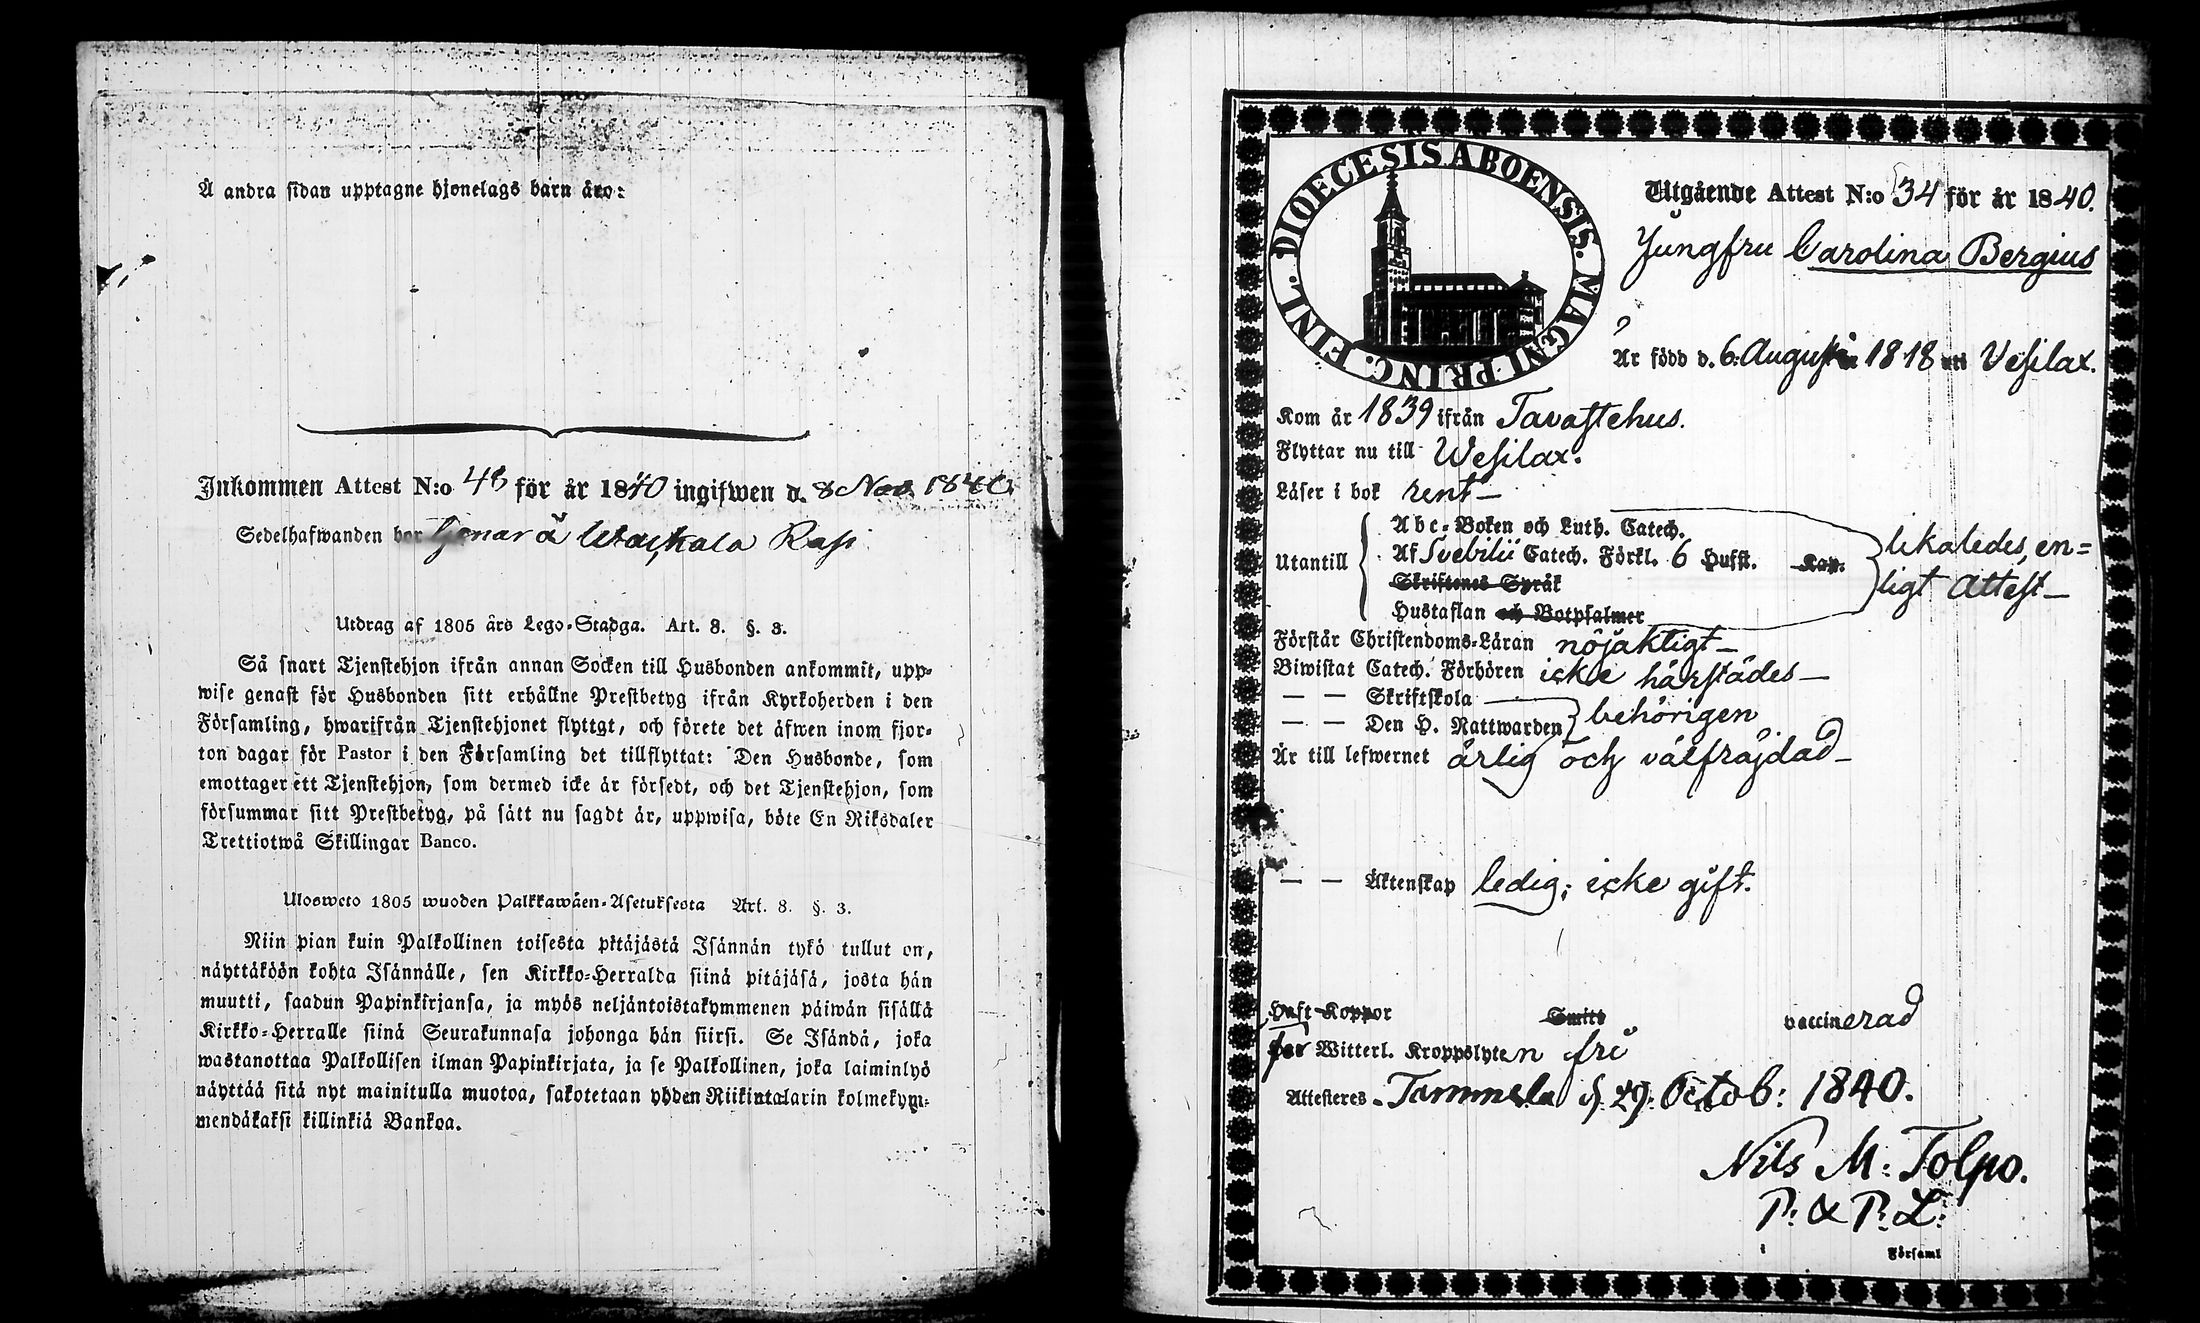 Å andra sidan upptagne hjonelags barn äro:
Inkommen Attest N:o 43 för år 1840 ingifwen d. 8 Nov. 1840.
Sedelhafwanden tjenar å
Utdrag af 1805 års Lego-Stadga. Art. 8. §. 3.
Så snart Tjenstehjon ifrån annan Socken till Husbonden ankommit, upp-
wise genast för Husbonden sitt erhållne Prestbetyg ifrån Kyrkoherden i den
Församling, hwarifrån Tjenstehjonet flyttgt, och förete det äfwen inom fjor-
ton dagar för Pastor i den Församling det tillflyttat: Den Husbonde, som
emottager ett Tjenstehjon, som dermed icke är försedt, och det Tjenstehjon, som
försummar sitt Prestbetyg, på sätt nu sagdt är, uppwisa, böte En Riksdaler
Trettiotwå Skillingar Banco.
Ulosweto 1805 wuoden Palkkawäen-Asetuksesta Art. 8. §. 3.
Niin pian kuin Palkollinen toisesta pitäjästä Isännän tykö tullut on,
näyttäköön kohta Isännälle, sen Kirkko-Herralda siinä pitäjäsä, josta hän
muutti, saadun Papinkirjansa, ja myös neljäntoistakymmenen päiwän sisällä
Kirkko-Herralle siinä Seurakunnasa johonga hän siirsi. Se Isändä, joka
wastanottaa Palkollisen ilman Papinkirjata, ja se Palkollinen, joka laiminlyö
näyttää sitä nyt mainitulla muotoa, sakotetaan yhden Riikintalarin kolmekym-
mendäkaksi killinkiä Bankoa.
DIOECESIS ABOENSIS. MAGNI PRINC. FINL.
Utgående Attest N:o 34 för år 1840.
Jungfru Carolina Bergius
Är född d. 6: Augusti 1818 uti Vesilax.
Kom år 1839 ifrån Tavastehus.
Flyttar nu till Wesilax.
Läser i bok rent—
Utantill
Abc-Boken och Luth. Catech.
Af Svebilii Catech. Förkl. 6 Hufst. Kap.
Skriftenes Språk
Hustaflan och Botpsalmer
likaledes, en=
ligt Attest—
Förstår Christendoms-Läran nöjaktigt—
Biwistat Catech. Förhören icke härstädes—
— — Skriftskola
— — Den H. Nattwarden behörigen
Är till lefwernet ärlig och välfräjdad—
— — Äktenskap ledig; icke gift.
Haft Koppor Smitt vaccinerad
för Witterl. Kroppslyten fri
Attesteres. Tammela d. 29. Octob: 1840.
Nils M: Tolpo.
P: & P: L:
Församl